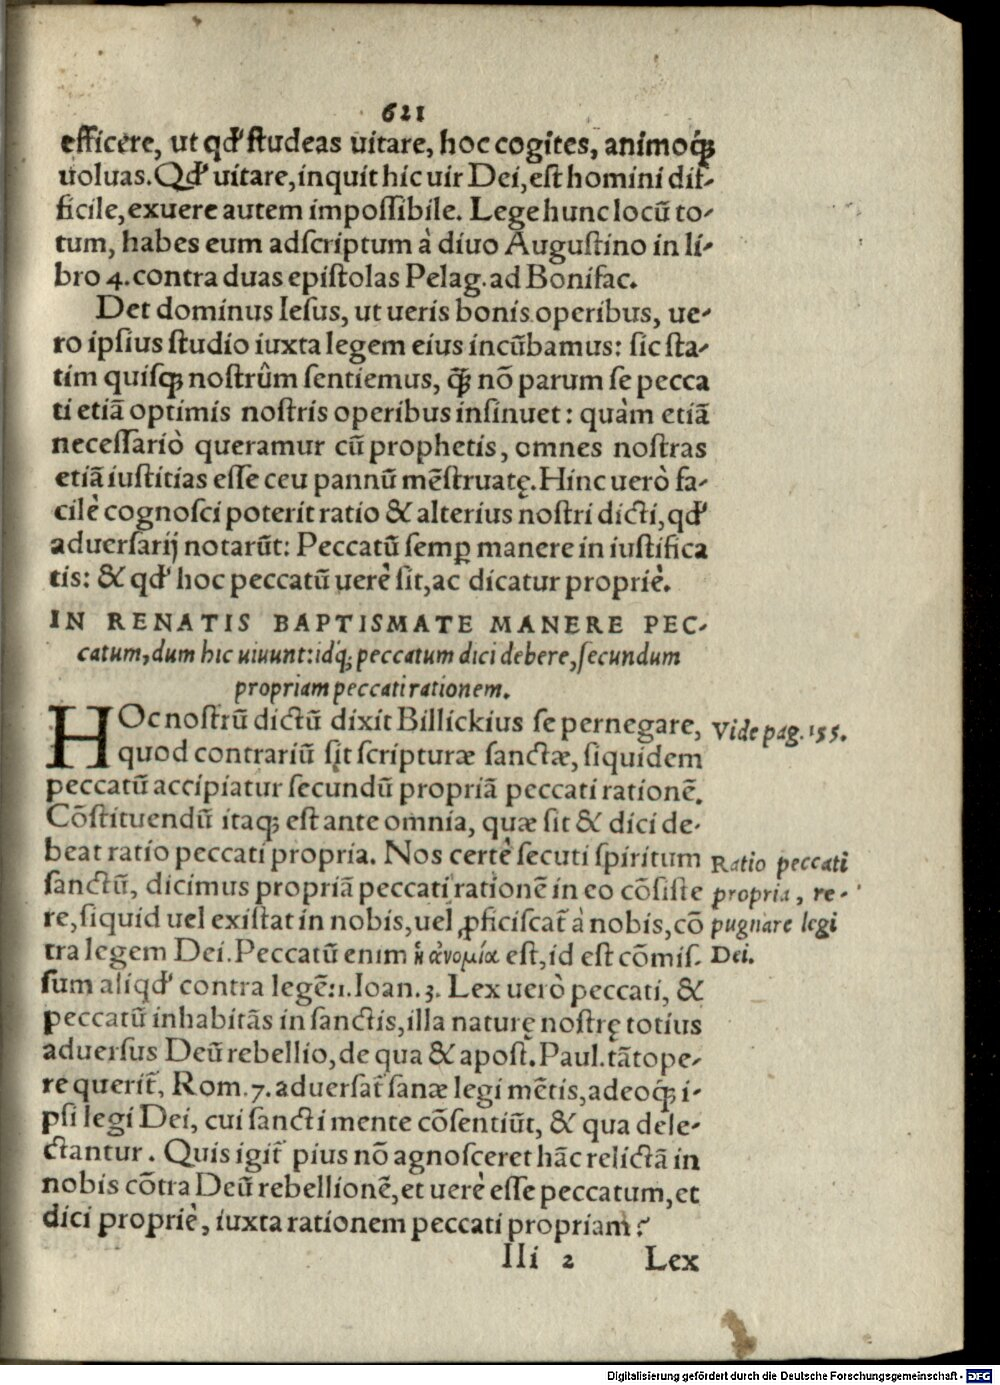 621
efficere, ut qđ studeas uitare, hoc cogites, animoq́ꝫ
uoluas. Qđ uitare, inquit hic uir Dei, est homini dif-
ficile, exuere autem impossibile. Lege hunc locũ to-
tum, habes eum adscriptum à diuo Augustino in li-
bro 4. contra duas epistolas Pelag. ad Bonifac.
Det dominus Iesus, ut ueris bonis operibus, ue-
ro ipsius studio iuxta legem eius incũbamus: sic sta-
tim quisqꝫ nostrûm sentiemus, q̃ꝫ nõ parum se pecca
ti etiã optimis nostris operibus insinuet: quàm etiã
necessariò queramur cũ prophetis, omnes nostras
etiã iustitias esse ceu pannũ mẽstruatę. Hinc uerò fa-
cilè cognosci poterit ratio & alterius nostri dicti, qđ
aduersarij notarũt: Peccatũ semꝑ manere in iustifica
tis: & qđ hoc peccatũ uerè sit, ac dicatur propriè.
IN RENATIS BAPTISMATE MANERE PEC-
catum, dum hic uiuunt: idq́; peccatum dici debere, secundum
propriam peccati rationem.
HOc nostrũ dictũ dixit Billickius se pernegare,
Vide pag. 155.
quod contrariũ sit scripturæ sanctæ, siquidem
peccatũ accipiatur secundũ propriã peccati rationẽ.
Cõstituendũ itaqꝫ est ante omnia, quæ sit & dici de-
beat ratio peccati propria. Nos certè secuti spiritum
Ratio peccati
sanctũ, dicimus propriã peccati rationẽ in eo cõsiste
propria, re-
re, siquid uel existat in nobis, uel ꝓficiscat̃ à nobis, cõ
pugnare legi
tra legem Dei. Peccatũ enim ἡ ἀνομία est, id est cõmis
Dei.
sum aliqđ contra legẽ: 1. Ioan. 3. Lex uerò peccati, &
peccatũ inhabitãs in sanctis, illa naturę nostrę totius
aduersus Deũ rebellio, de qua & apost. Paul. tãtope-
re querit̃, Rom. 7. aduersat̃ sanæ legi mẽtis, adeoq́ꝫ i-
psi legi Dei, cui sancti mente cõsentiũt, & qua dele-
ctantur. Quis igit̃ pius nõ agnosceret hãc relictã in
nobis cõtra Deũ rebellionẽ, et uerè esse peccatum, et
dici propriè, iuxta rationem peccati propriam?
IIi 2 Lex
Digitalisierung gefördert durch die Deutsche Forschungsgemeinschaft - DFG